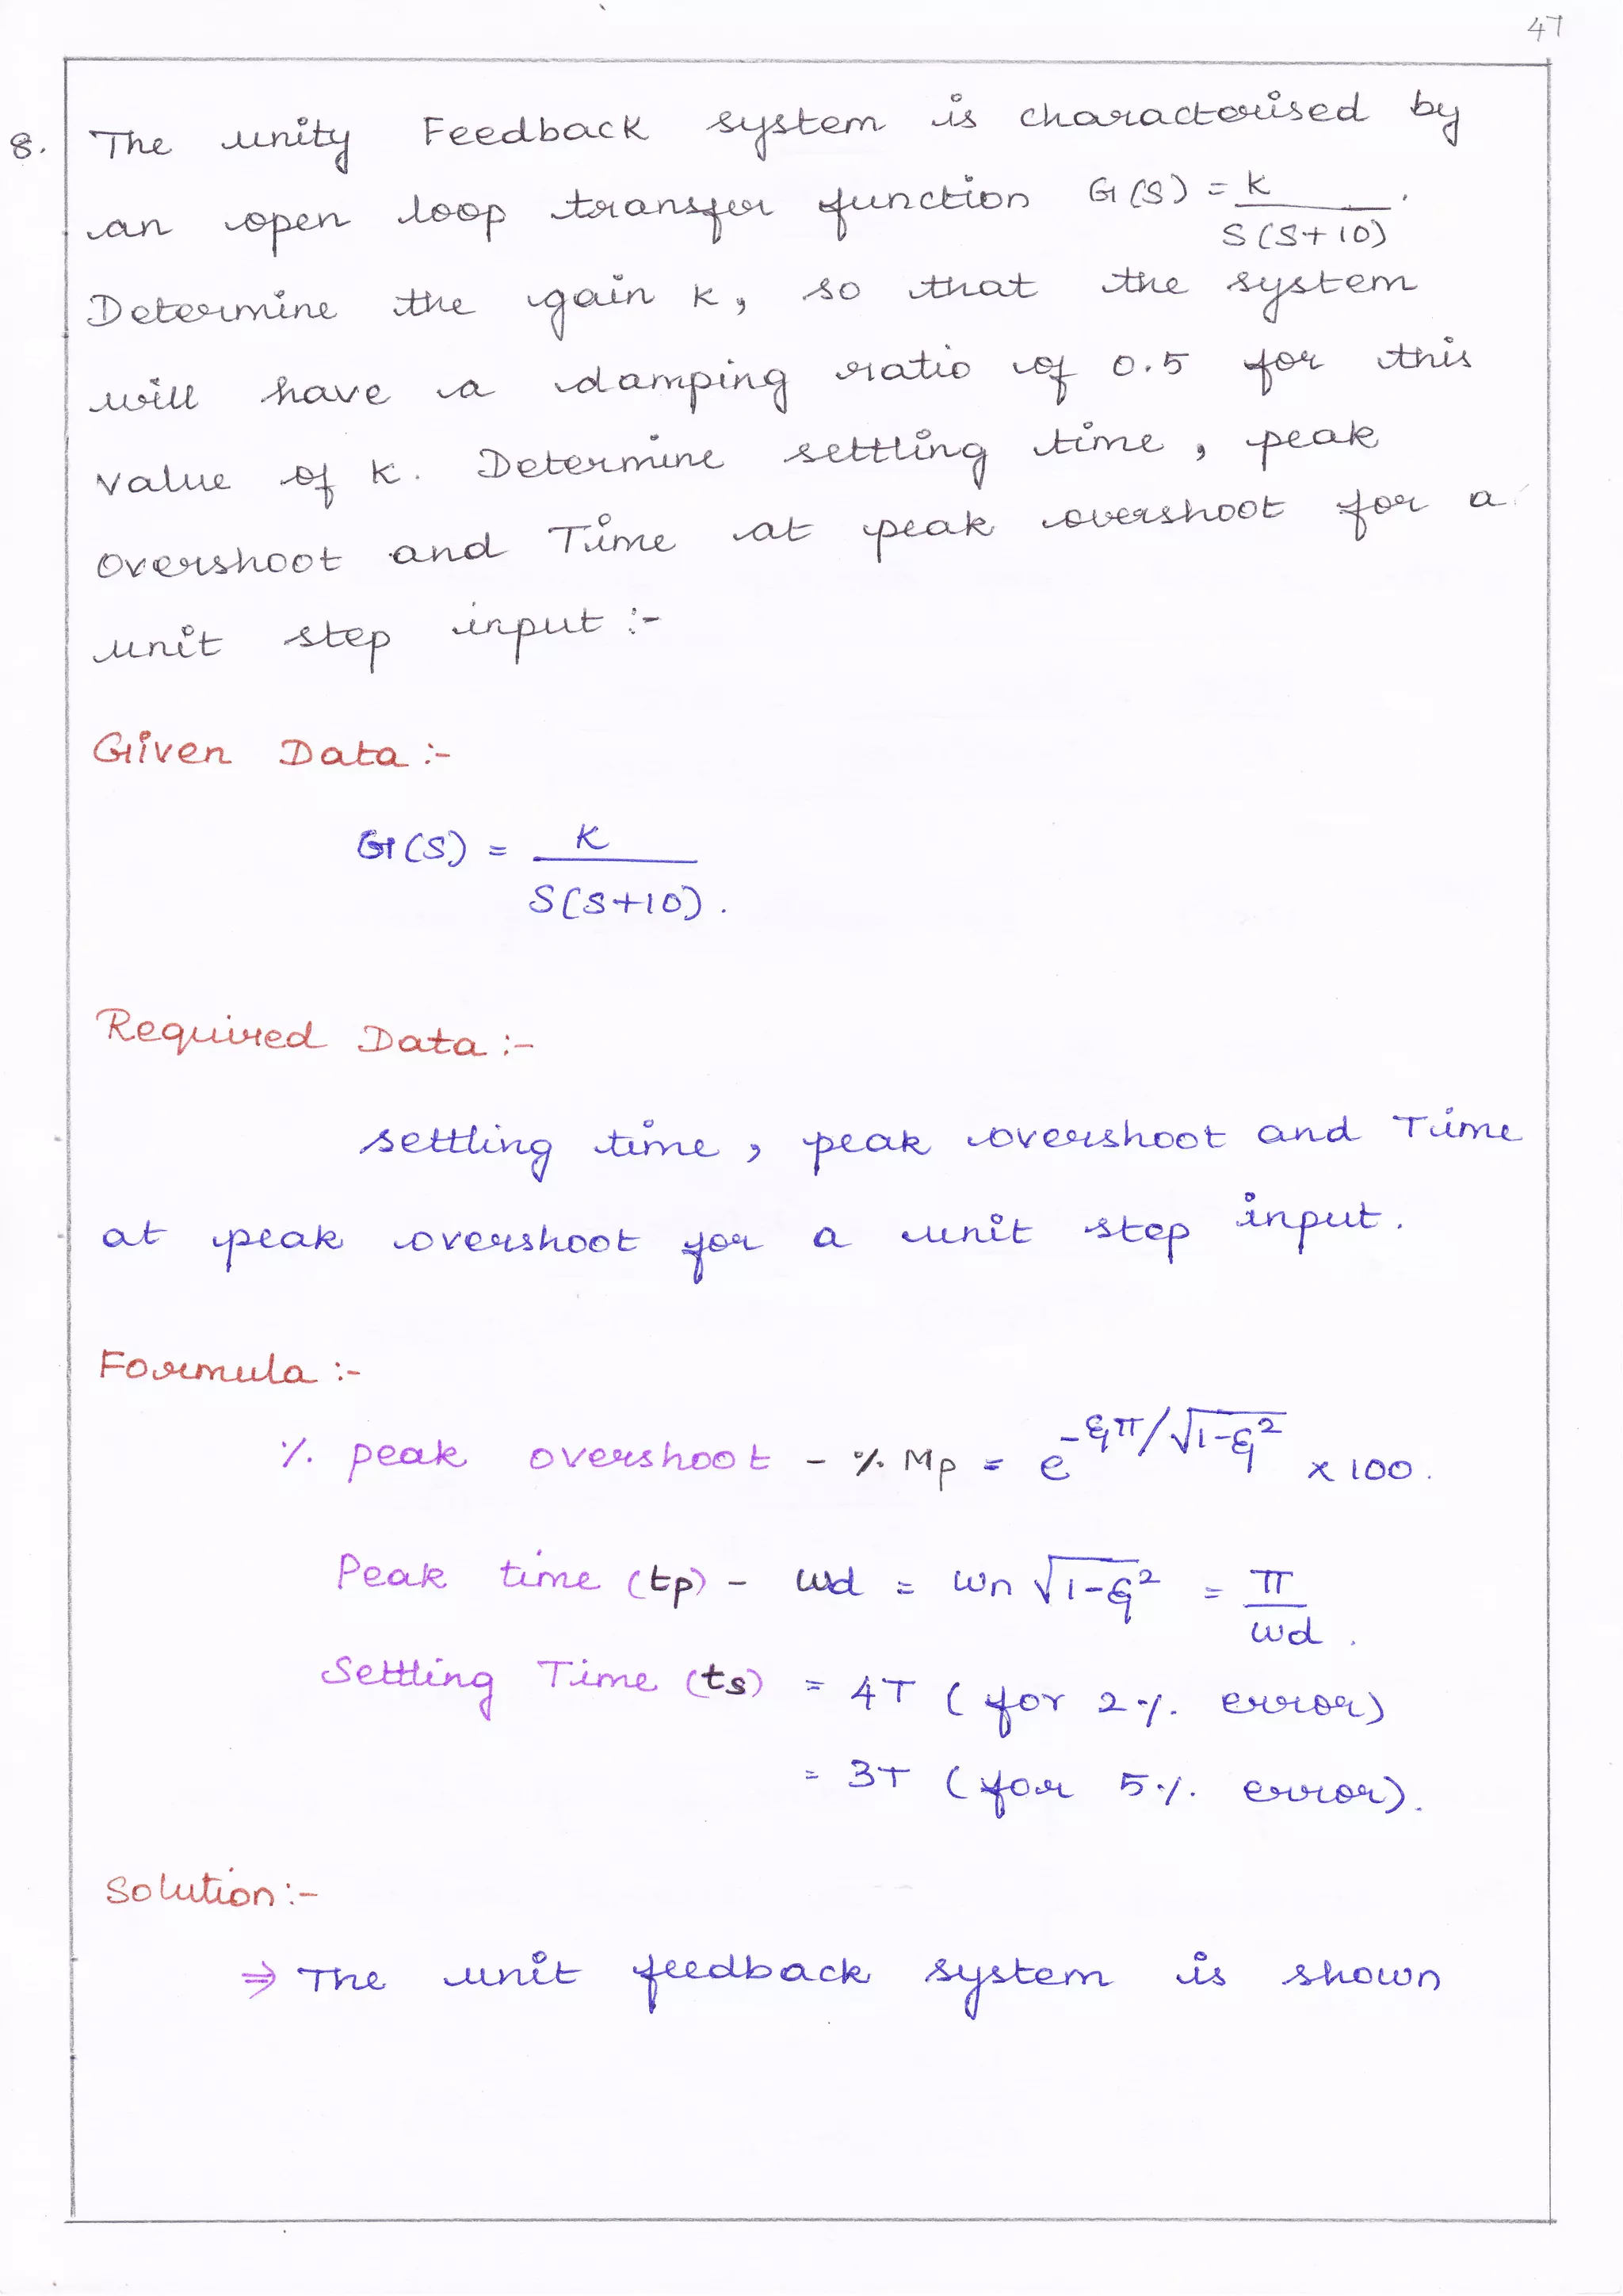 47
8. The unity Feedback system is characterised by
an open loop transfer function G(S) = K / S(S+10) .
Determine the gain K, so that the system
will have a damping ratio of 0.5 for this
value of K. Determine settling time, peak
overshoot and Time at peak overshoot for a
unit step input :-
Given Data :-
G(S) = K / S(S+10) .
Required Data :-
settling time, peak overshoot and Time
at peak overshoot for a unit step input.
Formula :-
% peak overshoot - % Mp = e^-ξπ/√1-ξ² x 100 .
Peak time (tp) - ωd = ωn √1-ξ² = π / ωd .
Settling Time (ts) = 4T ( for 2 % error)
= 3T ( for 5 % error).
Solution :-
⇒ The unit feedback system is shown